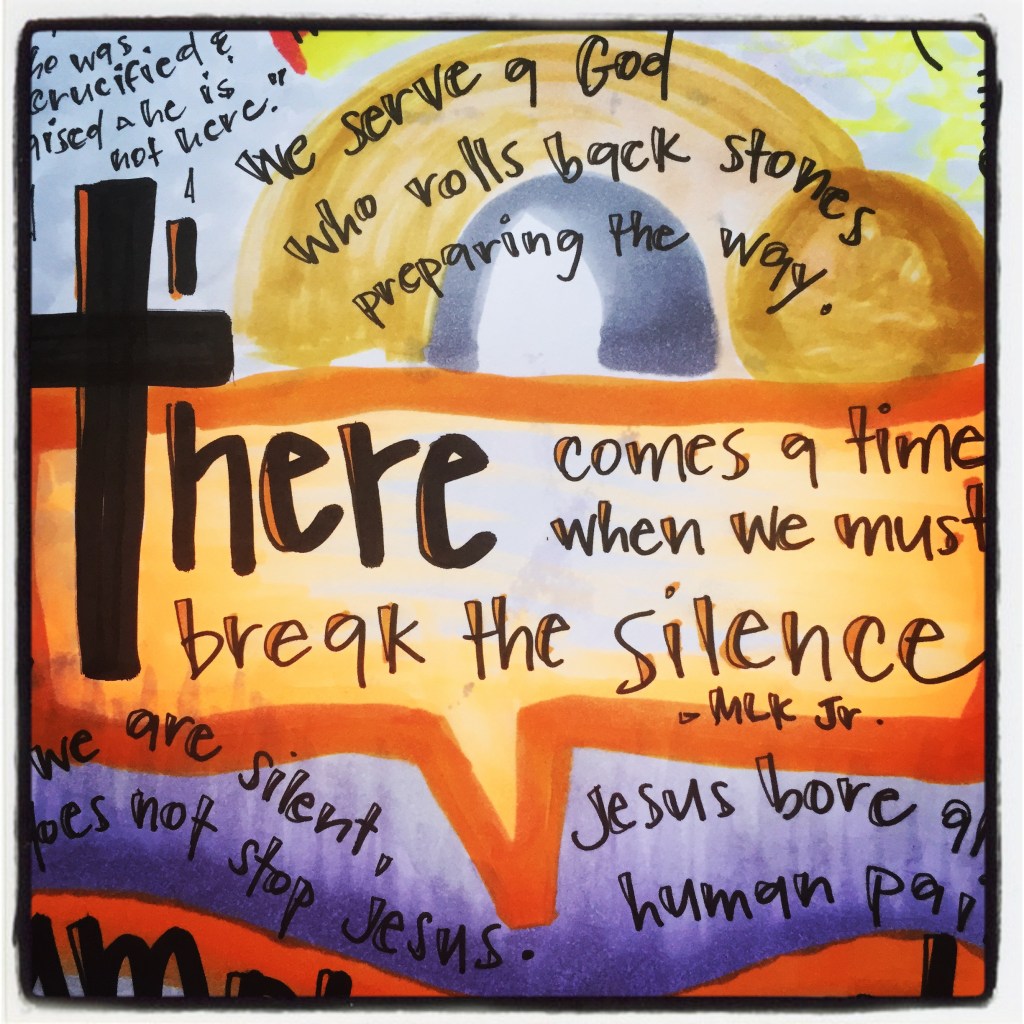 he was
crucified &
he is
not here."
we serve a God
who rolls back stones
preparing the way.
There comes a time
when we must
break the silence
- MLK Jr.
we are silent,
does not stop Jesus.
Jesus bore
human